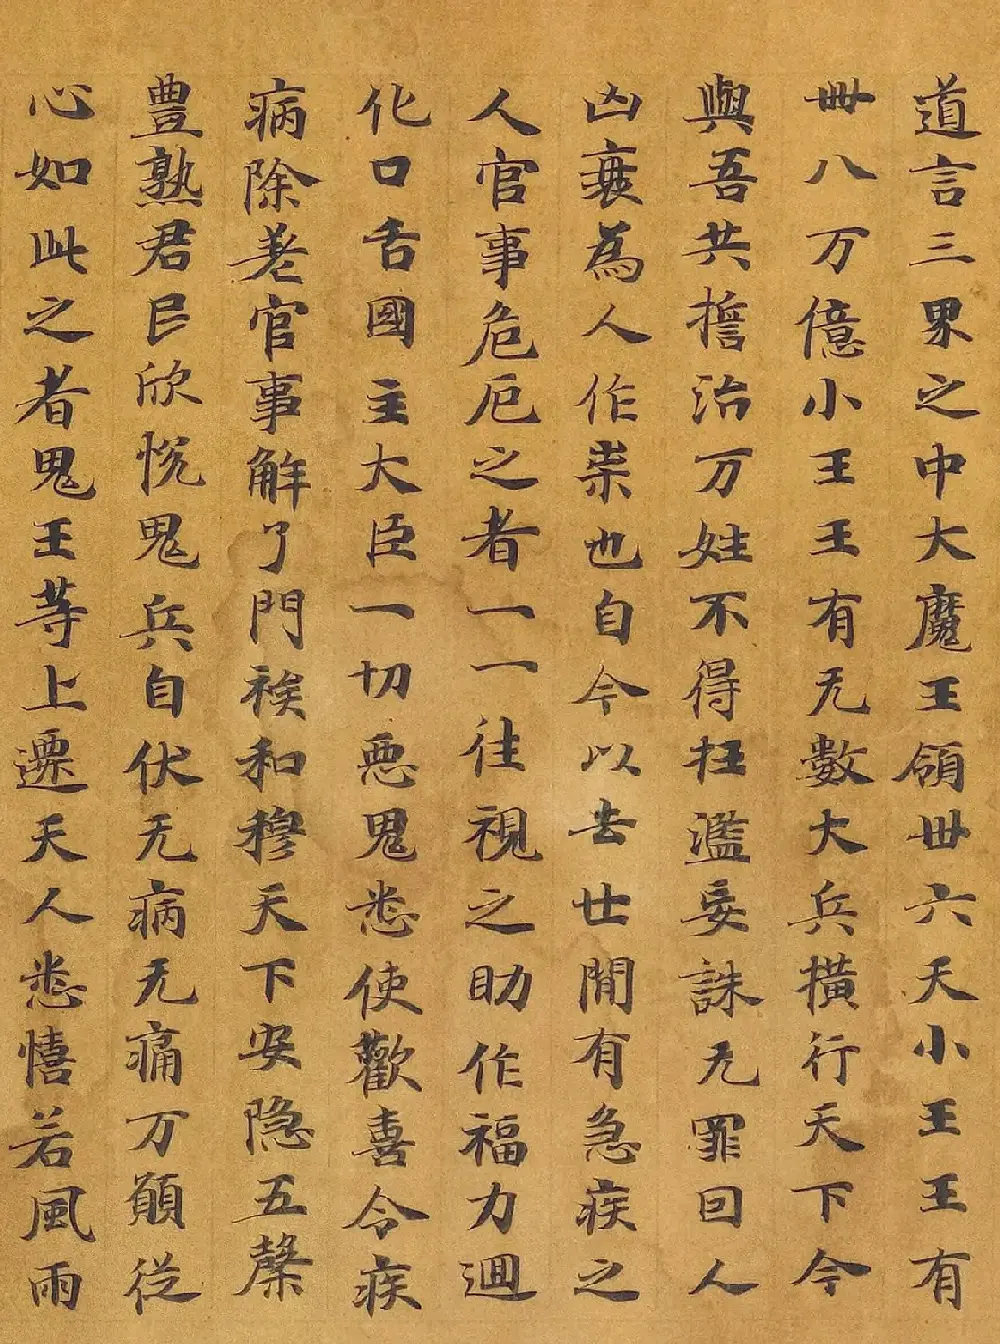 道言三界之中大魔王領卅六天小王王有
卌八万億小王王有无數大兵橫行天下今
與吾共擔治万姓不得枉濫妄誅无罪回人
凶衰為人作祟也自今以去世間有急疾之
人官事危厄之者一一往視之助作福力迴
化口舌國主大臣一切惡鬼悉使歡喜令疾
病除差官事解了門族和穆天下安隱五槃
豊熟君臣欣悅鬼兵自伏无病无痛万願從
心如此之者鬼王等上遷天人悉憘若風雨